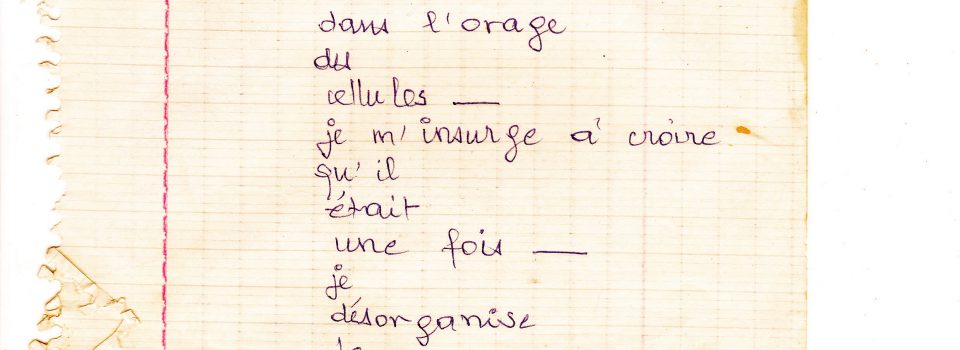 dans l'orage
des
cellules —
je m'insurge à croire
qu'il
était
une fois —
je
désorganise